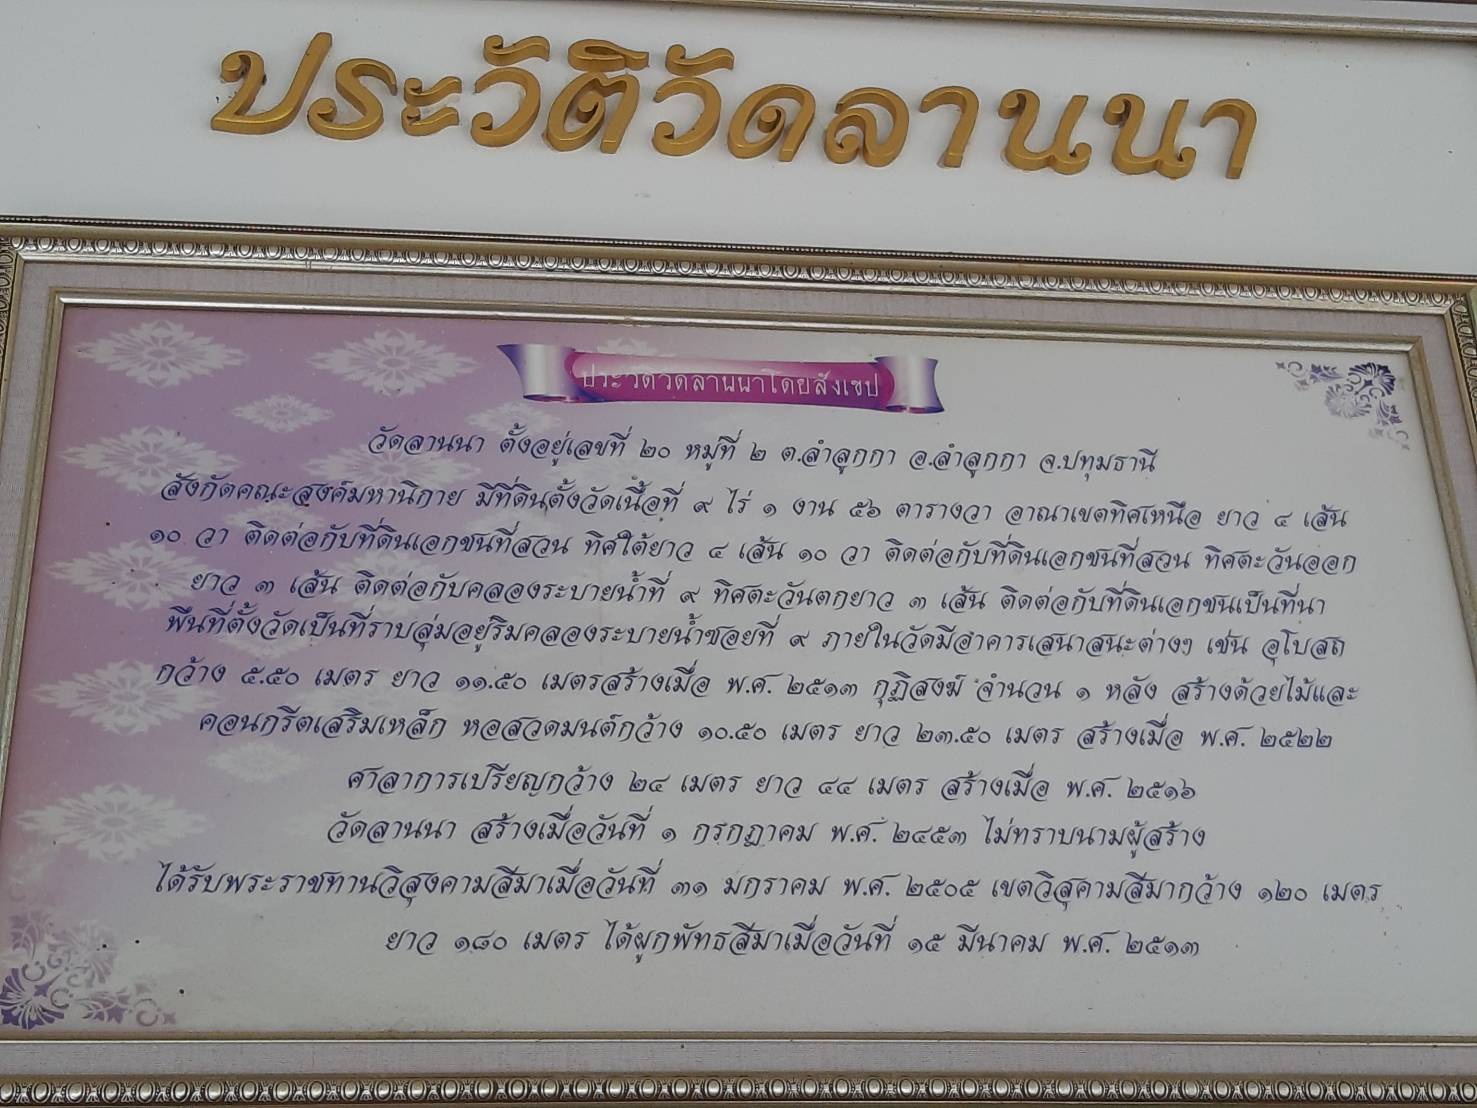 ประวัติวัดลานนา
ประวัติวัดลานนาโดยสังเขป
วัดลานนา ตั้งอยู่เลขที่ ๒๐ หมู่ที่ ๒ ต.ลำลูกกา อ.ลำลูกกา จ.ปทุมธานี
สังกัดคณะสงค์มหานิกาย มีที่ดินตั้งวัดเนื้อที่ ๙ ไร่ ๑ งาน ๕๖ ตารางวา อาณาเขตทิศเหนือ ยาว ๔ เส้น
๑๐ วา ติดต่อกับที่ดินเอกชนที่สวน ทิศใต้ยาว ๔ เส้น ๑๐ วา ติดต่อกับที่ดินเอกชนที่สวน ทิศตะวันออก
ยาว ๓ เส้น ติดต่อกับคลองระบายน้ำที่ ๙ ทิศตะวันตกยาว ๓ เส้น ติดต่อกับที่ดินเอกชนเป็นที่นา
พื้นที่ตั้งวัดเป็นที่ราบลุ่มอยู่ริมคลองระบายน้ำซอยที่ ๙ ภายในวัดมีอาคารเสนาสนะต่างๆ เช่น อุโบสถ
กว้าง ๕.๕๐ เมตร ยาว ๑๑.๕๐ เมตรสร้างเมื่อ พ.ศ. ๒๕๑๓ กุฏิสงฆ์ จำนวน ๑ หลัง สร้างด้วยไม้และ
คอนกรีตเสริมเหล็ก หอสวดมนต์กว้าง ๑๐.๕๐ เมตร ยาว ๒๓.๕๐ เมตร สร้างเมื่อ พ.ศ. ๒๕๒๒
ศาลาการเปรียญกว้าง ๒๔ เมตร ยาว ๔๔ เมตร สร้างเมื่อ พ.ศ. ๒๕๑๖
วัดลานนา สร้างเมื่อวันที่ ๑ กรกฎาคม พ.ศ. ๒๔๕๓ ไม่ทราบนามผู้สร้าง
ได้รับพระราชทานวิสุงคามสีมาเมื่อวันที่ ๓๑ มกราคม พ.ศ. ๒๕๐๕ เขตวิสุคามสีมากว้าง ๑๒๐ เมตร
ยาว ๑๘๐ เมตร ได้ผูกพัทธสีมาเมื่อวันที่ ๑๕ มีนาคม พ.ศ. ๒๕๑๓